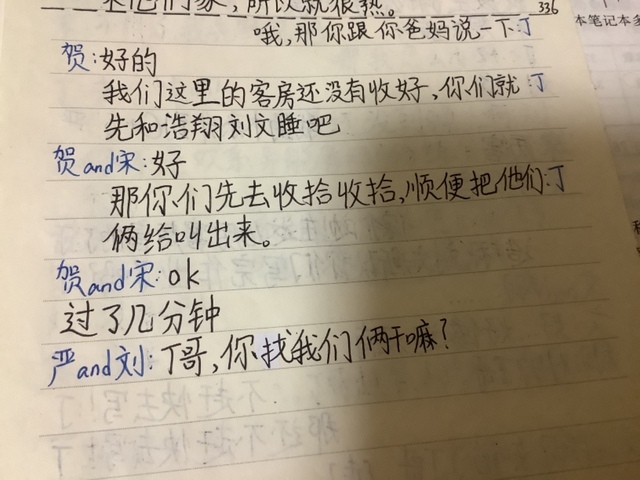 来他们家，所以就很热。
336
哦，那你跟你爸妈说一下:丁
贺:好的
我们这里的客房还没有收好，你们就:丁
先和浩翔刘文睡吧
贺and宋:好
那你们先去收拾收拾，顺便把他们:丁
俩给叫出来。
贺and宋:ok
过了几分钟
严and刘:丁哥，你找我们俩干嘛？
本笔记本多